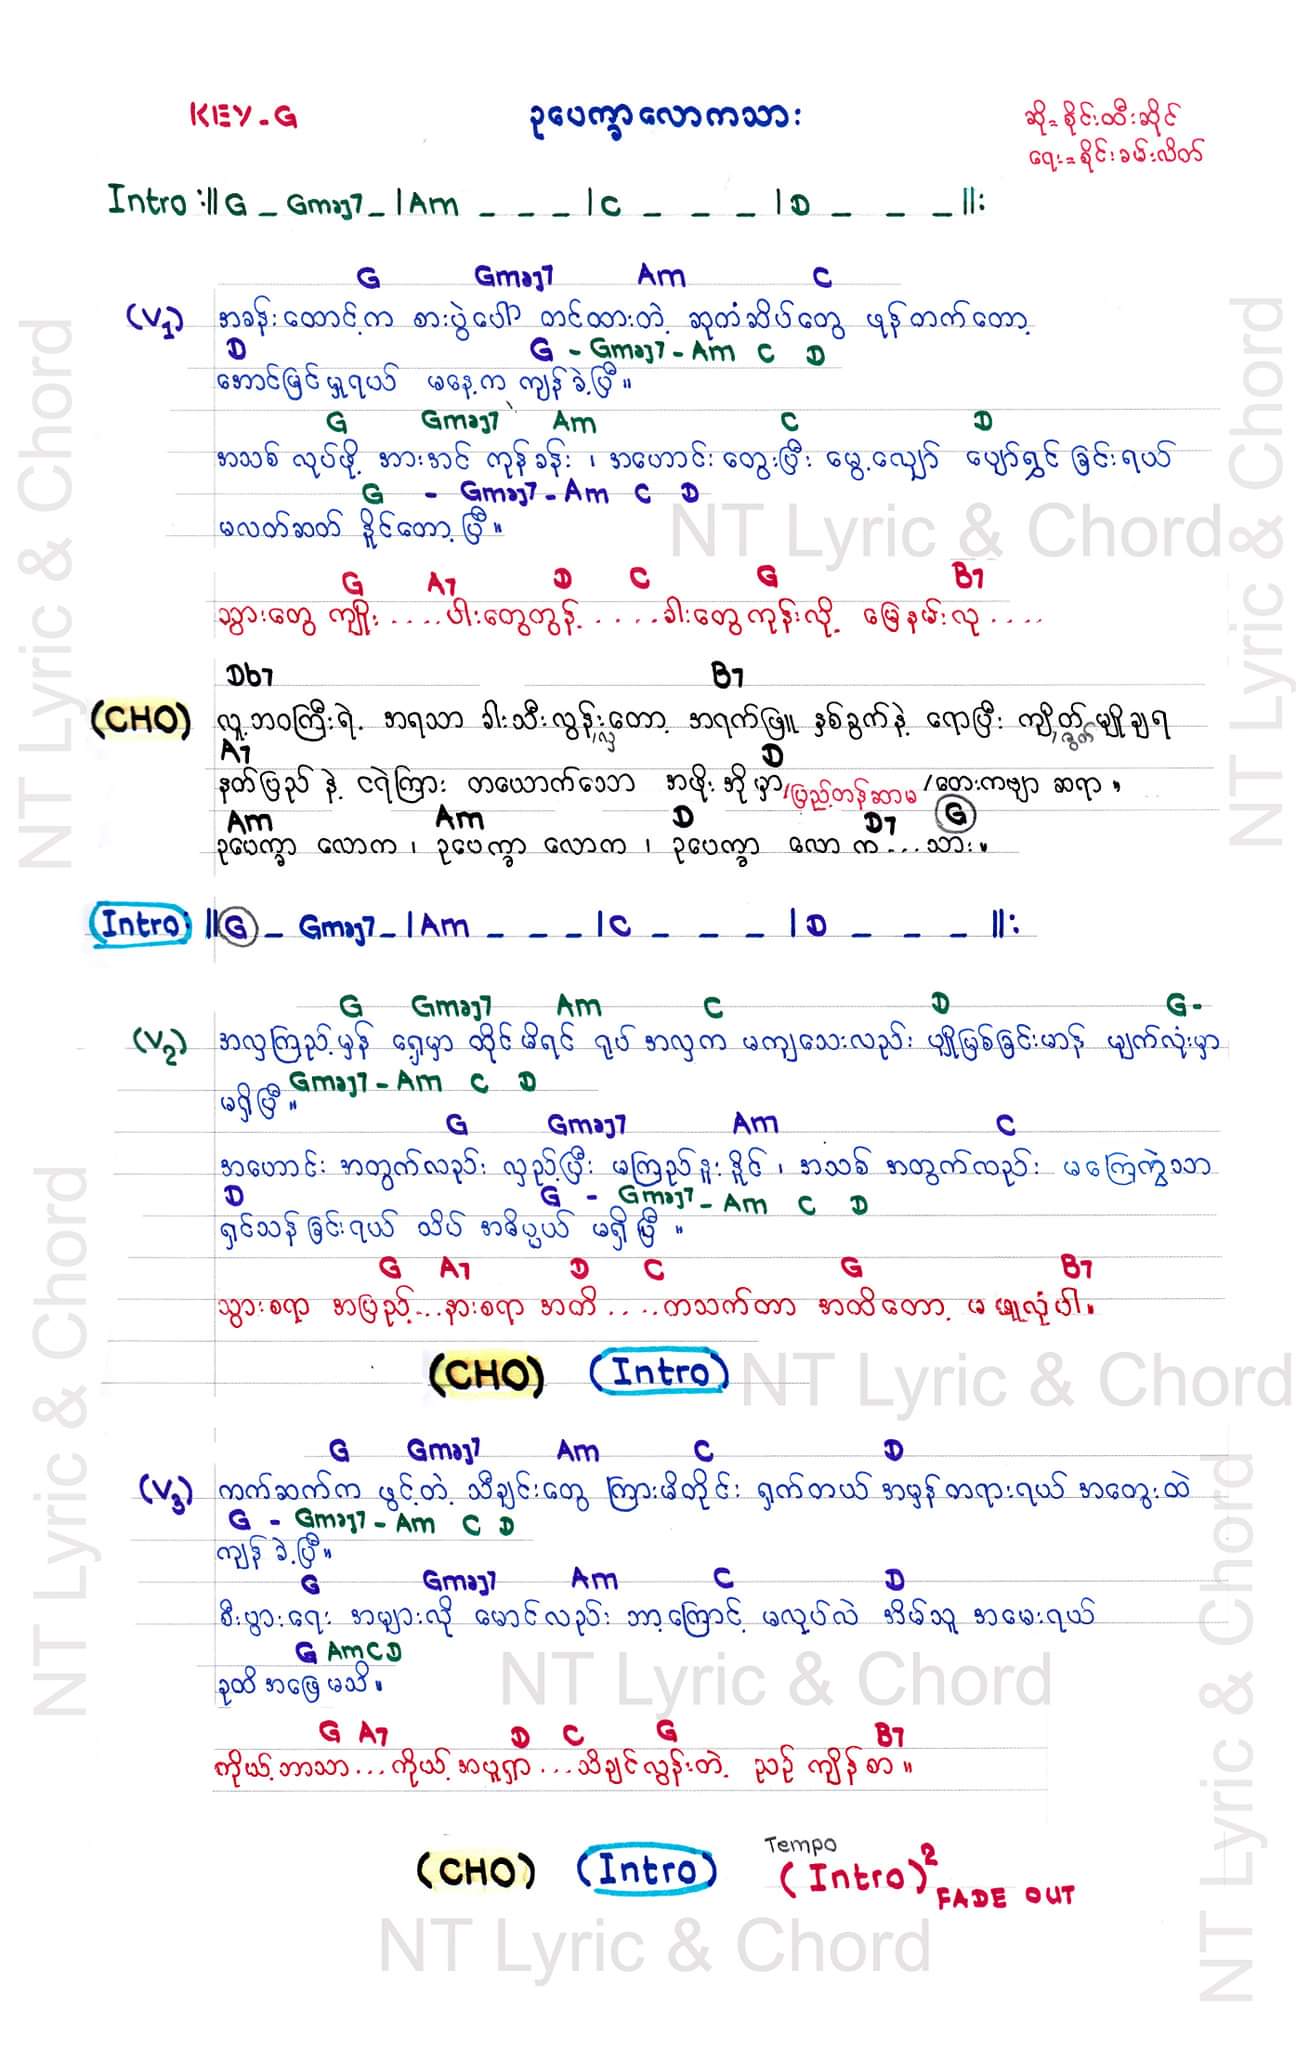 KEY-G
ဥပေက္ခာလောကသား
ဆို=စိုင်းထီးဆိုင်
ရေး=စိုင်းခမ်းလိတ်
Intro :|| G _ Gmaj7 _ | Am _ _ _ | C _ _ _ | D _ _ _ ||:
G Gmaj7 Am C
(V1) အခန်းထောင့်က စားပွဲပေါ် တင်ထားတဲ့ ဆုတံဆိပ်တွေ ဖုန်တက်တော့
D G - Gmaj7 - Am C D
အောင်မြင်မှုရယ် မနေ့က ကျန်ခဲ့ပြီ။
G Gmaj7 Am C D
အသစ်လုပ်ဖို့ အားအင် ကုန်ခန်း ၊ အဟောင်းတွေးပြီး မွေ့လျော် ပျော်ရွှင်ခြင်းရယ်
G - Gmaj7 - Am C D
မလတ်ဆတ် နိူင်တော့ပြီ။
G A7 D C G B7
သွားတွေ ကျိုး....ပါးတွေတွန့်.....ခါးတွေကုန်းလို့ မြေနမ်းလု....
Db7 B7
(CHO) လူ့ဘဝကြီးရဲ့ အရသာ ခါးသီးလွန်းတော့ အရက်ဖြူ နှစ်ခွက်နဲ့ ရောပြီး ကျိတ်မျိုချရ
A7 D
နတ်ပြည်နဲ့ ငရဲကြား တယောက်သော အဖိုးအိုမှာ/ပြည့်တန်ဆာမ/တေးကဗျာဆရာ။
Am Am D D7 G
ဥပေက္ခာ လောက ၊ ဥပေက္ခာ လောက ၊ ဥပေက္ခာ လောက...သား။
Intro: || G _ Gmaj7 _ | Am _ _ _ | C _ _ _ | D _ _ _ ||:
G Gmaj7 Am C D G-
(V2) အလှကြည့်မှန် ရှေ့မှာ ထိုင်မိရင် ရုပ်အလှက မကျသေးလည်း ပျိုမြစ်ခြင်းမာန် မျက်လုံးမှာ
Gmaj7 - Am C D
မရှိပြီ။
G Gmaj7 Am C
အဟောင်း အတွက်လည်း လှည့်ပြီး မကြည့်နူးနိူင် ၊ အသစ် အတွက်လည်း မကြေကွဲသာ
D G - Gmaj7 - Am C D
ရှင်သန်ခြင်းရယ် သိပ်အဓိပ္ပယ် မရှိပြီ။
G A7 D C G B7
သွားစရာ အပြည့်...နားစရာ အတိ....တသက်တာ အထိတော့ မဖူလုံပါ။
(CHO) (Intro)
G Gmaj7 Am C D
(V3) ကက်ဆက်က ဖွင့်တဲ့ သီချင်းတွေ ကြားမိတိုင်း ရှက်တယ် အမှန်တရားရယ် အတွေးထဲ
G - Gmaj7 - Am C D
ကျန်ခဲ့ပြီ။
G Gmaj7 Am C D
စီးပွားရေး အများလို မောင်လည်း ဘာ့ကြောင့် မလုပ်လဲ အိမ်သူ အမေးရယ်
G Am C D
ခုထိအဖြေမသိ။
G A7 D C G B7
ကိုယ့်ဘာသာ...ကိုယ့်အပူရှာ...သိချင်လွန်းတဲ့ ညဉ် ကျိန်စာ။
(CHO) (Intro) Tempo (Intro)2 FADE OUT
NT Lyric & Chord
NT Lyric & Chord
NT Lyric & Chord
NT Lyric & Chord
NT Lyric & Chord
NT Lyric & Chord
NT Lyric & Chord
NT Lyric & Chord